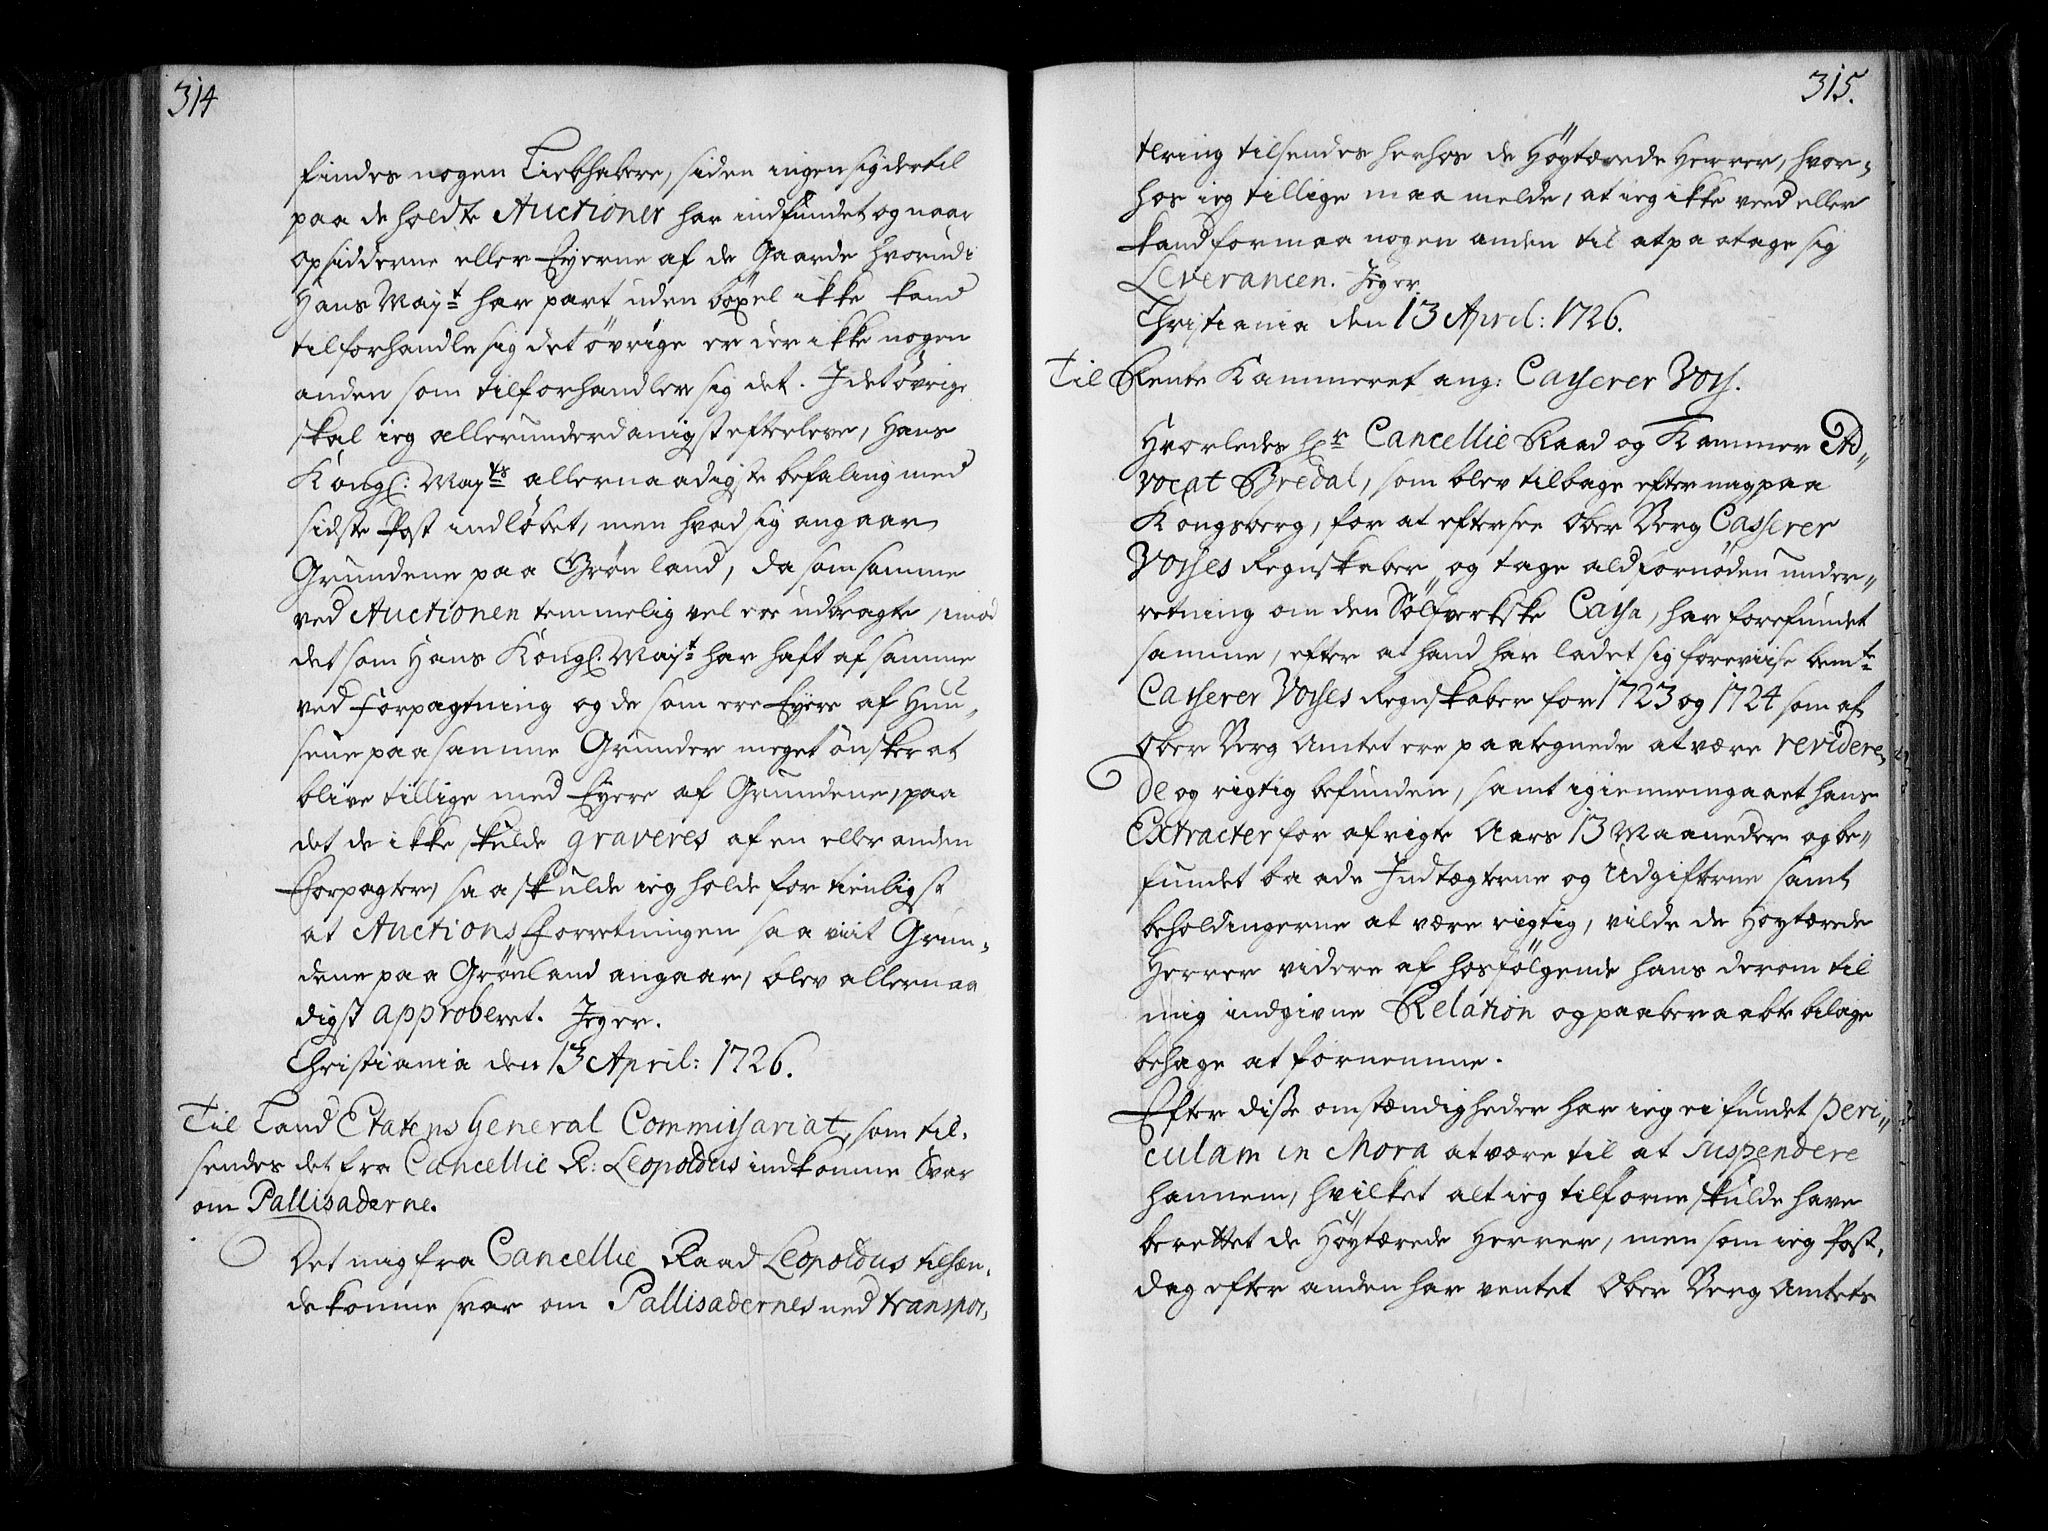 314
findes nogen Liebhabere, siden ingen sig dertil
paa de holdte Auctioner har indfundet og naar
opsidderne eller Eyerne af de Gaarde hvorudi
Hans Mayt har part uden böxel ikke kand
tilforhandle sig det övrige er der ikke nogen
anden som tilforhandler sig det. I det övrige
skal ieg allerunderdanigst efterleve, Hans
Kongl: Mayts allernaadigste befaling med
sidste Post indlöbet, men hvad sig angaar
Grundene paa Grönland, da som samme
ved Auctionen temmelig vel ere udbragte, imod
det som Hans Kongl: Mayt har haft af samme
ved forpagtning og de som ere Eyere af Huu-
sene paa samme Grunder meget önsker at
blive tillige med Eyere af Grundene, paa
det de ikke skulde graveres af en eller anden
Forpagter, saa skulde ieg holde for tienligst
at Auctions Forretningen saa viit Grun-
dene paa Grönland angaar, blev allernaa
digst approberet. Jeg er.
Christiania den 13 April: 1726.
Til Land Etatens General Commissariat, som til-
sendes det fra Cancellie R: Leopoldus indkomne Svar
om Pallisaderne.
Det mig fra Cancellie Raad Leopoldus tilsen-
de komne svar om Pallisadernes ned transpor-
315.
tering tilsendes herhos de Höytærede Herrer, hvor-
hos ieg tillige maa melde, at ieg ikke veed eller
kand formaa nogen anden til at paatage sig
Leverancen. Jeg er.
Christiania den 13 April: 1726.
Til Rente Kammeret ang: Casserer Voss.
Hvorledes Hr Cancellie Raad og Kammer Ad-
vocat Bredal, som blev tilbage efter mig paa
Kongsberg, for at eftersee Ober Berg Casserer
Vosses Regnskaber og tage ald fornöden under-
retning om den Sölfverkske Cassa, har forefundet
samme, efter at hand har ladet sig foreviise bemte
Casserer Vosses Regnskaber for 1723 og 1724 som af
Ober Berg Amtet ere paategnede at være revidere-
de og rigtig befunden, samt igiennemgaaet hans
Extracter for afvigte Aars 13 Maaneder og be-
fundet baade Indtægterne og Udgifterne samt
beholdingerne at være rigtig, vilde de Höytærede
Herrer videre af hosfölgende hans derom til
mig indgivne Relation og paaberaabte bilage
behage at fornemme.
Efter disse omstændigheder har ieg ei fundet peri-
culam in Mora at være til at suspendere
hannem, hvilket alt ieg tilforne skulde have
berettet de Höytærede Herrer, men som ieg Post-
dag efter anden har ventet Ober Berg Amtets